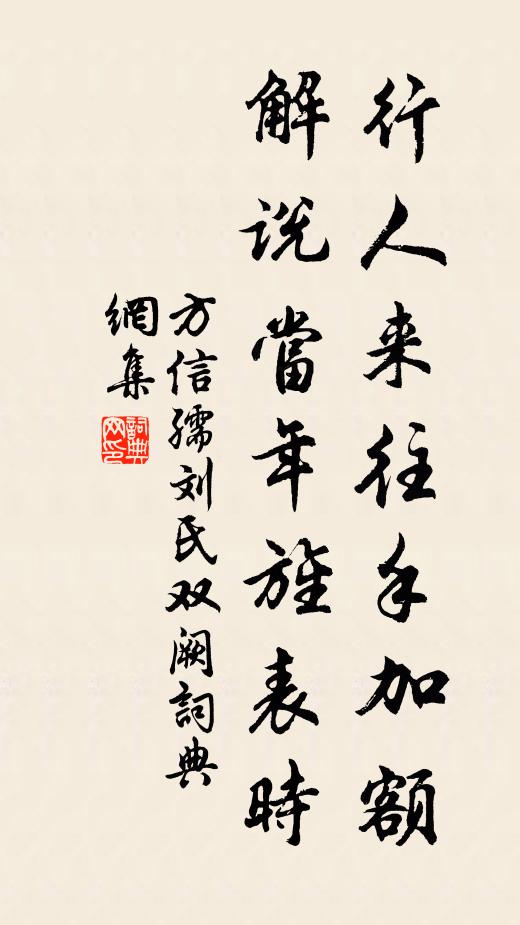 行人来往手加額
解说當年旌表時
方信孺刘氏双阙詞典
網集
詞典
网印